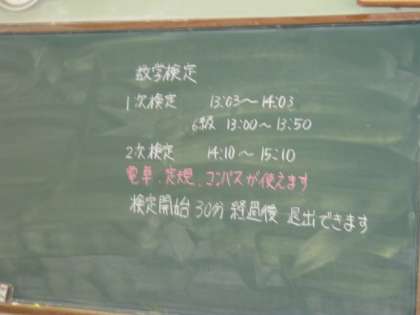 数学検定
1次検定 13:03〜14:03
6級 13:00〜13:50
2次検定 14:10〜15:10
電卓、定規、コンパスが使えます
検定開始 30分 経過後 退出できます